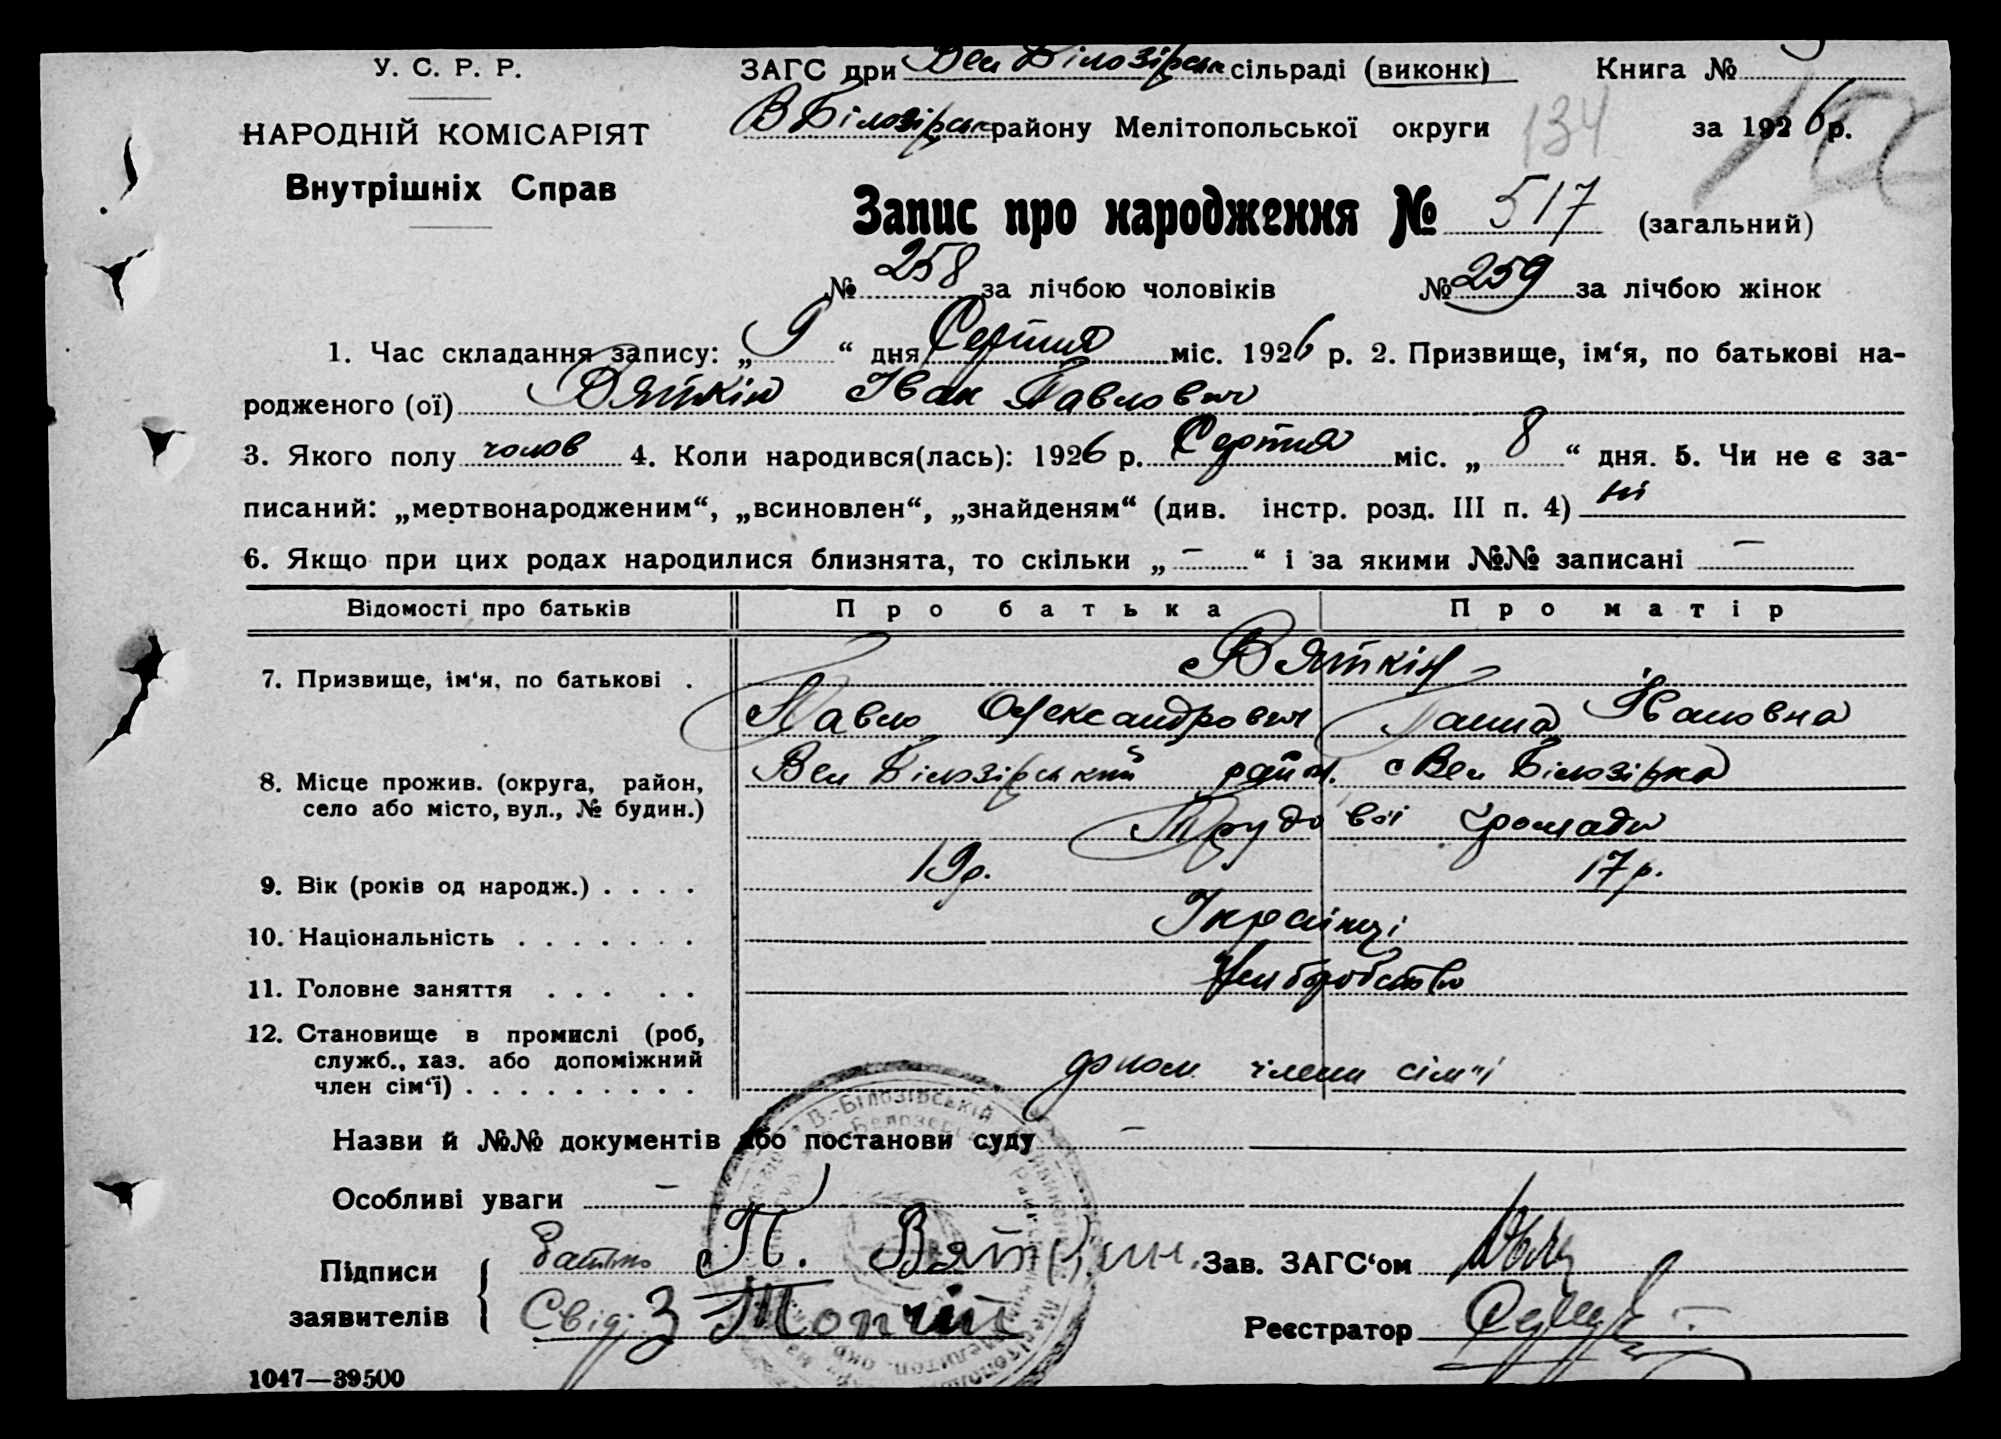 У. С. Р. Р.
НАРОДНІЙ КОМІСАРІЯТ
Внутрішніх Справ
ЗАГС при Вел Білозірськ сільраді (виконк)
Книга №
В Білозірськ району Мелітопольської округи
134
за 1926 р.
Запис про народження № 517 (загальний)
№ 258 за лічбою чоловіків № 259 за лічбою жінок
1. Час складання запису: „ 9 “ дня Серпня міс. 1926 р. 2. Призвище, ім‘я, по батькові на-
родженого (ої) Вяткін Іван Павлович
3. Якого полу чолов 4. Коли народився(лась): 1926 р. Серпня міс. „ 8 “ дня. 5. Чи не є за-
писаний: „мертвонародженим“, „всиновлен“, „знайденям“ (див. інстр. розд. III п. 4) ні
6. Якщо при цих родах народилися близнята, то скільки „ — “ і за якими №№ записані —
Відомості про батьків Про батька Про матір
7. Призвище, ім‘я, по батькові . Вяткін
Павло Олександрович Ганна
8. Місце прожив. (округа, район, Вел Білозірський район. с Вел Білозірка
село або місто, вул., № будин.) Трудової громади
9. Вік (років од народж.) . . . . 19р. 17р.
10. Національність . . . . . . . Українці
11. Головне заняття . . . . . Хліборобство
12. Становище в промислі (роб,
служб., хаз. або допоміжний
член сім‘ї) . . . . . . . . . допом. члени сім"ї
Назви й №№ документів або постанови суду —
Особливі уваги —
Підписи заявителів
Батько П. Вяткин.
Свід: З Топчій
Зав. ЗАГС‘ом
Реєстратор
В.-БІЛОЗІВСЬКІЙ
1047—39500